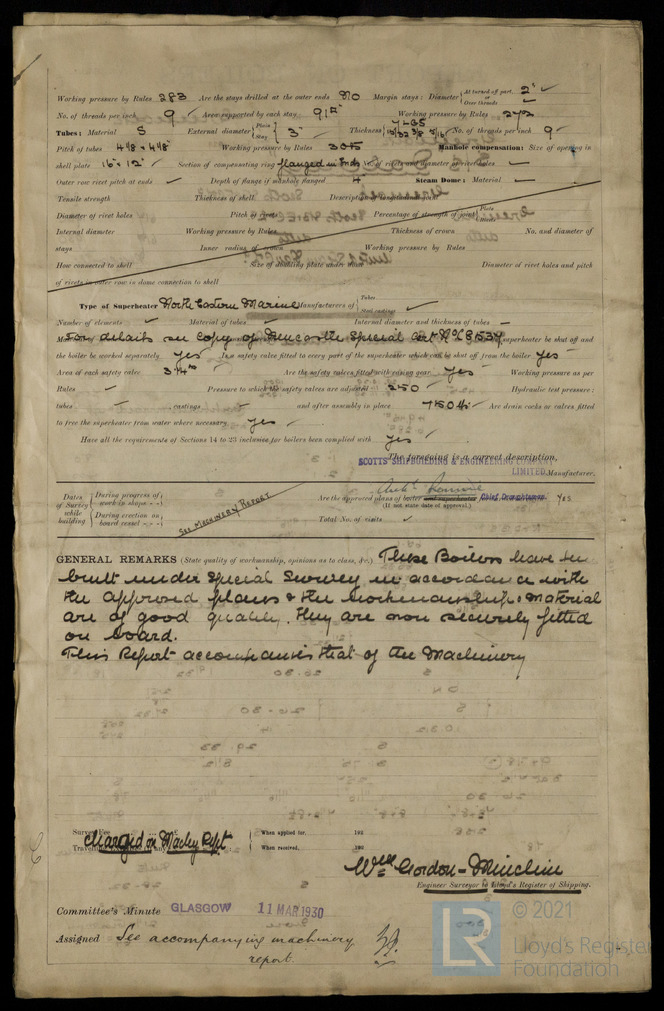 Working pressure by Rules 283 Are the stays drilled at the outer ends No Margin stays: Diameter { At turned off part, 2" or Over threads
No. of threads per inch 9 Area supported by each stay 91 Working pressure by Rules 272
Tubes: Material S External diameter { Plain Stay 3" Thickness { No. of threads per inch 9
Pitch of tubes 4 1/8 × 4 1/8 Working pressure by Rules 305 Manhole compensation: Size of opening in
shell plate 16" × 12" Section of compensating ring flanged in No. of rivets and diameter of rivet holes
Outer row rivet pitch at ends Depth of flange if manhole flanged 4" Steam Dome: Material
Tensile strength Thickness of shell Description of longitudinal joint
Diameter of rivet holes Pitch of rivets Percentage of strength of joint { Plate
Internal diameter Working pressure by Rules Thickness of crown No. and diameter of
stays Inner radius of crown Working pressure by Rules
How connected to shell Size of doubling plate under dome Diameter of rivet holes and pitch
of rivets in outer row in dome connection to shell
Type of Superheater North Eastern Marine Manufacturers of { Tubes Steel castings
Number of elements Material of tubes Internal diameter and thickness of tubes
For details see copy of Newcastle Special Cert superheater be shut off and
the boiler be worked separately yes Is a safety valve fitted to every part of the superheater which can be shut off from the boiler yes
Area of each safety valve Are the safety valves fitted with easing gear yes Working pressure as per
Rules Pressure to which the safety valves are adjusted 250 Hydraulic test pressure:
tubes castings and after assembly in place 750 lbs Are drain cocks or valves fitted
to free the superheater from water where necessary yes
Have all the requirements of Sections 14 to 23 inclusive for boilers been complied with yes
The foregoing is a correct description,
SCOTTS' SHIPBUILDING & ENGINEERING COMPANY
LIMITED Manufacturer.
Chief Draughtsman
Dates of Survey while building { During progress of work in shops - - During erection on board vessel - - -
SEE MACHINERY REPORT
Are the approved plans of boiler and superheater yes
(If not state date of approval.)
Total No. of visits
GENERAL REMARKS (State quality of workmanship, opinions as to class, &c.) These Boilers have been
built under Special Survey in accordance with
the approved plans & the workmanship & material
are of good quality. They are now securely fitted
on board.
This Report accompanies that of the Machinery
Survey Fee When applied for, 192
Charged on Machy Rept
Travelling When received, 192
Wm Gordon-Minclin
Engineer Surveyor to Lloyd's Register of Shipping.
Committee's Minute GLASGOW 11 MAR 1930
Assigned See accompanying machinery
report.
© 2021
Lloyd's Register
Foundation
LR